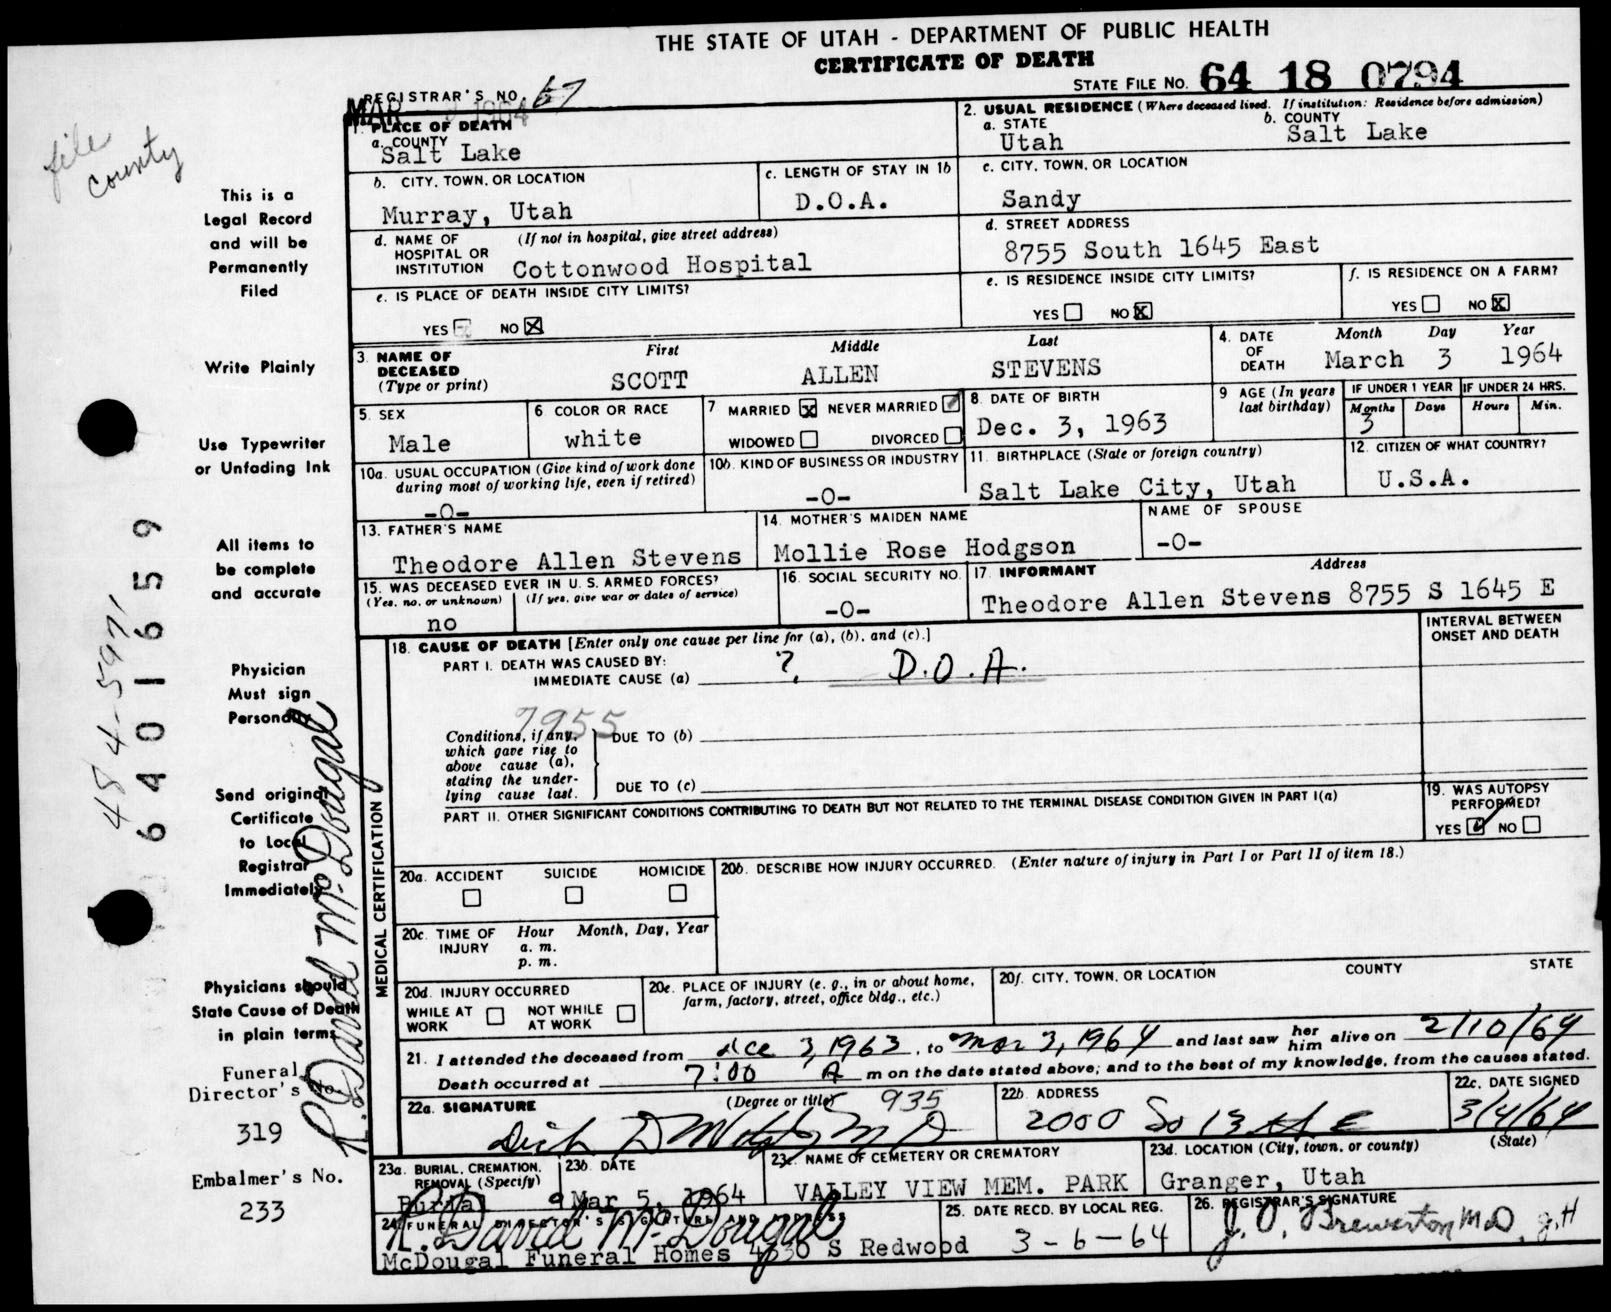 THE STATE OF UTAH - DEPARTMENT OF PUBLIC HEALTH
CERTIFICATE OF DEATH
STATE FILE NO. 64 18 0794
REGISTRAR'S NO. 67
MAR 1964
file county
1. PLACE OF DEATH
a. COUNTY
Salt Lake
2. USUAL RESIDENCE (Where deceased lived. If institution: Residence before admission)
a. STATE
Utah
b. COUNTY
Salt Lake
b. CITY, TOWN, OR LOCATION
Murray, Utah
c. LENGTH OF STAY IN 1b
D.O.A.
c. CITY, TOWN, OR LOCATION
Sandy
d. NAME OF HOSPITAL OR INSTITUTION (If not in hospital, give street address)
Cottonwood Hospital
d. STREET ADDRESS
8755 South 1645 East
e. IS PLACE OF DEATH INSIDE CITY LIMITS?
YES NO X
e. IS RESIDENCE INSIDE CITY LIMITS?
YES NO X
f. IS RESIDENCE ON A FARM?
YES NO X
3. NAME OF DECEASED (Type or print)
First Middle Last
SCOTT ALLEN STEVENS
4. DATE OF DEATH
Month Day Year
March 3 1964
5. SEX
Male
6 COLOR OR RACE
white
7 MARRIED X NEVER MARRIED
WIDOWED DIVORCED
8. DATE OF BIRTH
Dec. 3, 1963
9 AGE (In years last birthday)
IF UNDER 1 YEAR IF UNDER 24 HRS.
Months Days Hours Min.
3
10a. USUAL OCCUPATION (Give kind of work done during most of working life, even if retired)
-0-
10b. KIND OF BUSINESS OR INDUSTRY
-0-
11. BIRTHPLACE (State or foreign country)
Salt Lake City, Utah
12. CITIZEN OF WHAT COUNTRY?
U.S.A.
13. FATHER'S NAME
Theodore Allen Stevens
14. MOTHER'S MAIDEN NAME
Mollie Rose Hodgson
NAME OF SPOUSE
-0-
15. WAS DECEASED EVER IN U. S. ARMED FORCES?
(Yes, no, or unknown) (If yes, give war or dates of service)
no
16. SOCIAL SECURITY NO.
-0-
17. INFORMANT Address
Theodore Allen Stevens 8755 S 1645 E
MEDICAL CERTIFICATION
18. CAUSE OF DEATH [Enter only one cause per line for (a), (b), and (c).]
INTERVAL BETWEEN ONSET AND DEATH
PART I. DEATH WAS CAUSED BY:
IMMEDIATE CAUSE (a) ? D.O.A.
7955
Conditions, if any, which gave rise to above cause (a), stating the underlying cause last.
DUE TO (b)
DUE TO (c)
PART II. OTHER SIGNIFICANT CONDITIONS CONTRIBUTING TO DEATH BUT NOT RELATED TO THE TERMINAL DISEASE CONDITION GIVEN IN PART I(a)
19. WAS AUTOPSY PERFORMED?
YES NO
20a. ACCIDENT SUICIDE HOMICIDE
20b. DESCRIBE HOW INJURY OCCURRED. (Enter nature of injury in Part I or Part II of item 18.)
20c. TIME OF INJURY Hour Month, Day, Year
a. m.
p. m.
20d. INJURY OCCURRED
WHILE AT WORK NOT WHILE AT WORK
20e. PLACE OF INJURY (e. g., in or about home, farm, factory, street, office bldg., etc.)
20f. CITY, TOWN, OR LOCATION COUNTY STATE
21. I attended the deceased from dec 3, 1963, to Mar 3, 1964 and last saw her him alive on 2/10/64
Death occurred at 7:00 A m on the date stated above; and to the best of my knowledge, from the causes stated.
22a. SIGNATURE (Degree or title) 935
M D
22b. ADDRESS
2000 So 13th E
22c. DATE SIGNED
3/4/64
23a. BURIAL, CREMATION, REMOVAL (Specify)
Burial
23b. DATE
Mar 5, 1964
23c. NAME OF CEMETERY OR CREMATORY
VALLEY VIEW MEM. PARK
23d. LOCATION (City, town, or county) (State)
Granger, Utah
24. FUNERAL DIRECTOR'S SIGNATURE AND ADDRESS
R. David McDougal
McDougal Funeral Homes 4330 S Redwood
25. DATE RECD. BY LOCAL REG.
3-6-64
26. REGISTRAR'S SIGNATURE
J. O. Brewerton M.D. J.H
This is a
Legal Record
and will be
Permanently
Filed
Write Plainly
Use Typewriter
or Unfading Ink
All items to
be complete
and accurate
Physician
Must sign
Personally
Send original
Certificate
to Local
Registrar
Immediately
Physicians should
State Cause of Death
in plain terms
Funeral
Director's No.
319
Embalmer's No.
233
R. David McDougal
6401659
484-5971